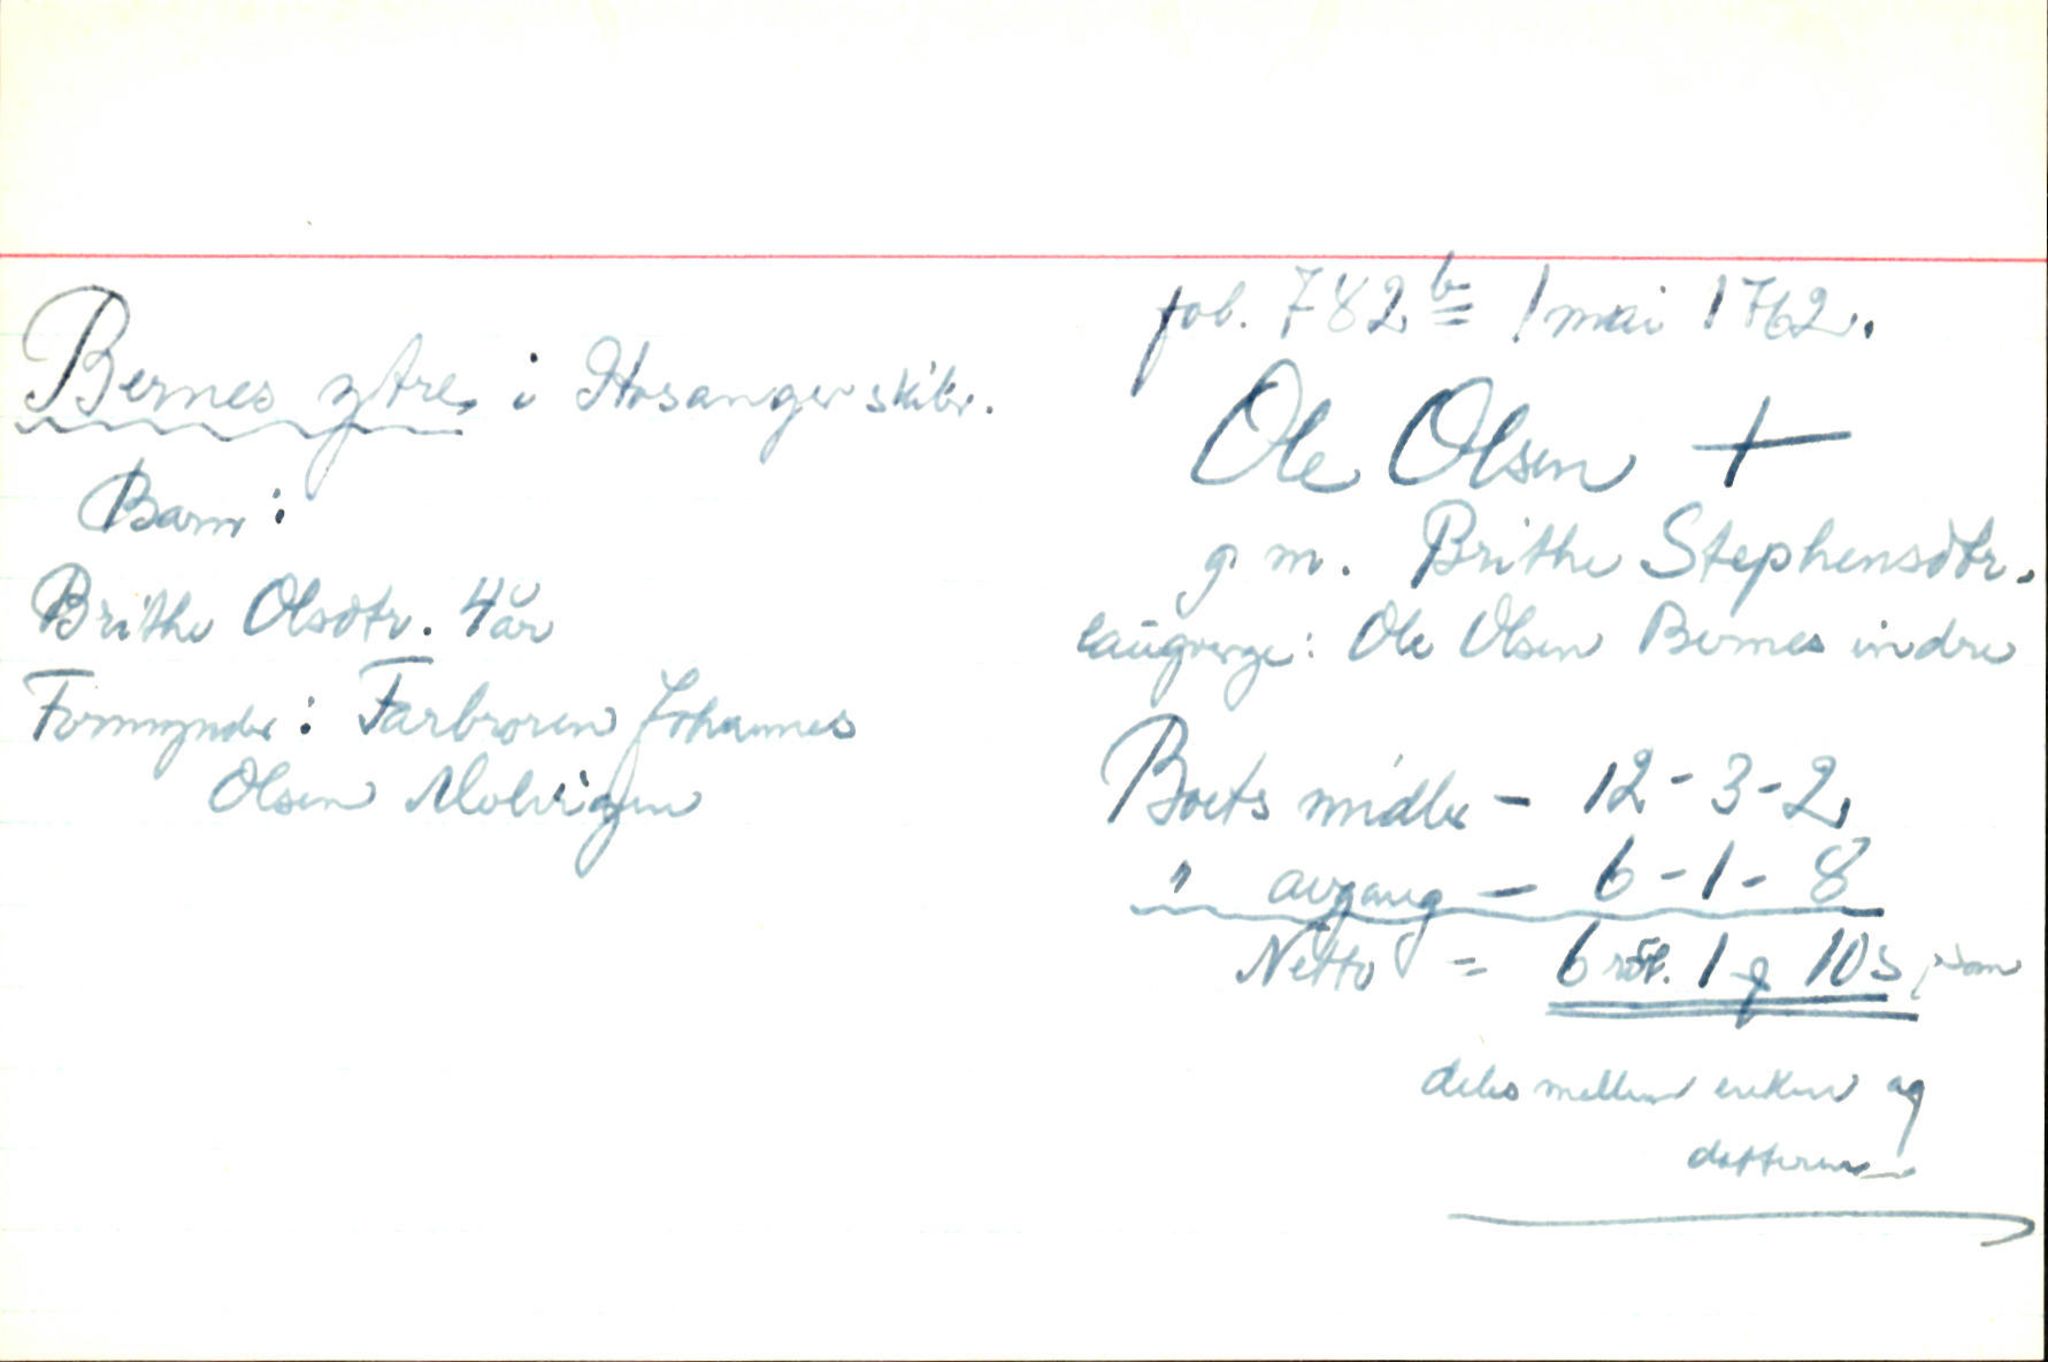 Bernes ytre, i Hosanger skibr.
Barn:
Brithe Olsdtr. 4 år
Formynder: Farbroren Johannes
Olsen Molvigen
fol. 782 b 1 mai 1762.
Ole Olsen +
g. m. Brithe Stephensdtr.
laugverge: Ole Olsen Bernes indre
Boets midler - 12 - 3 - 2
" avgang - 6 - 1 - 8
Netto = 6 rdl. 1 q 10 s, som
deles mellem enken og
datteren